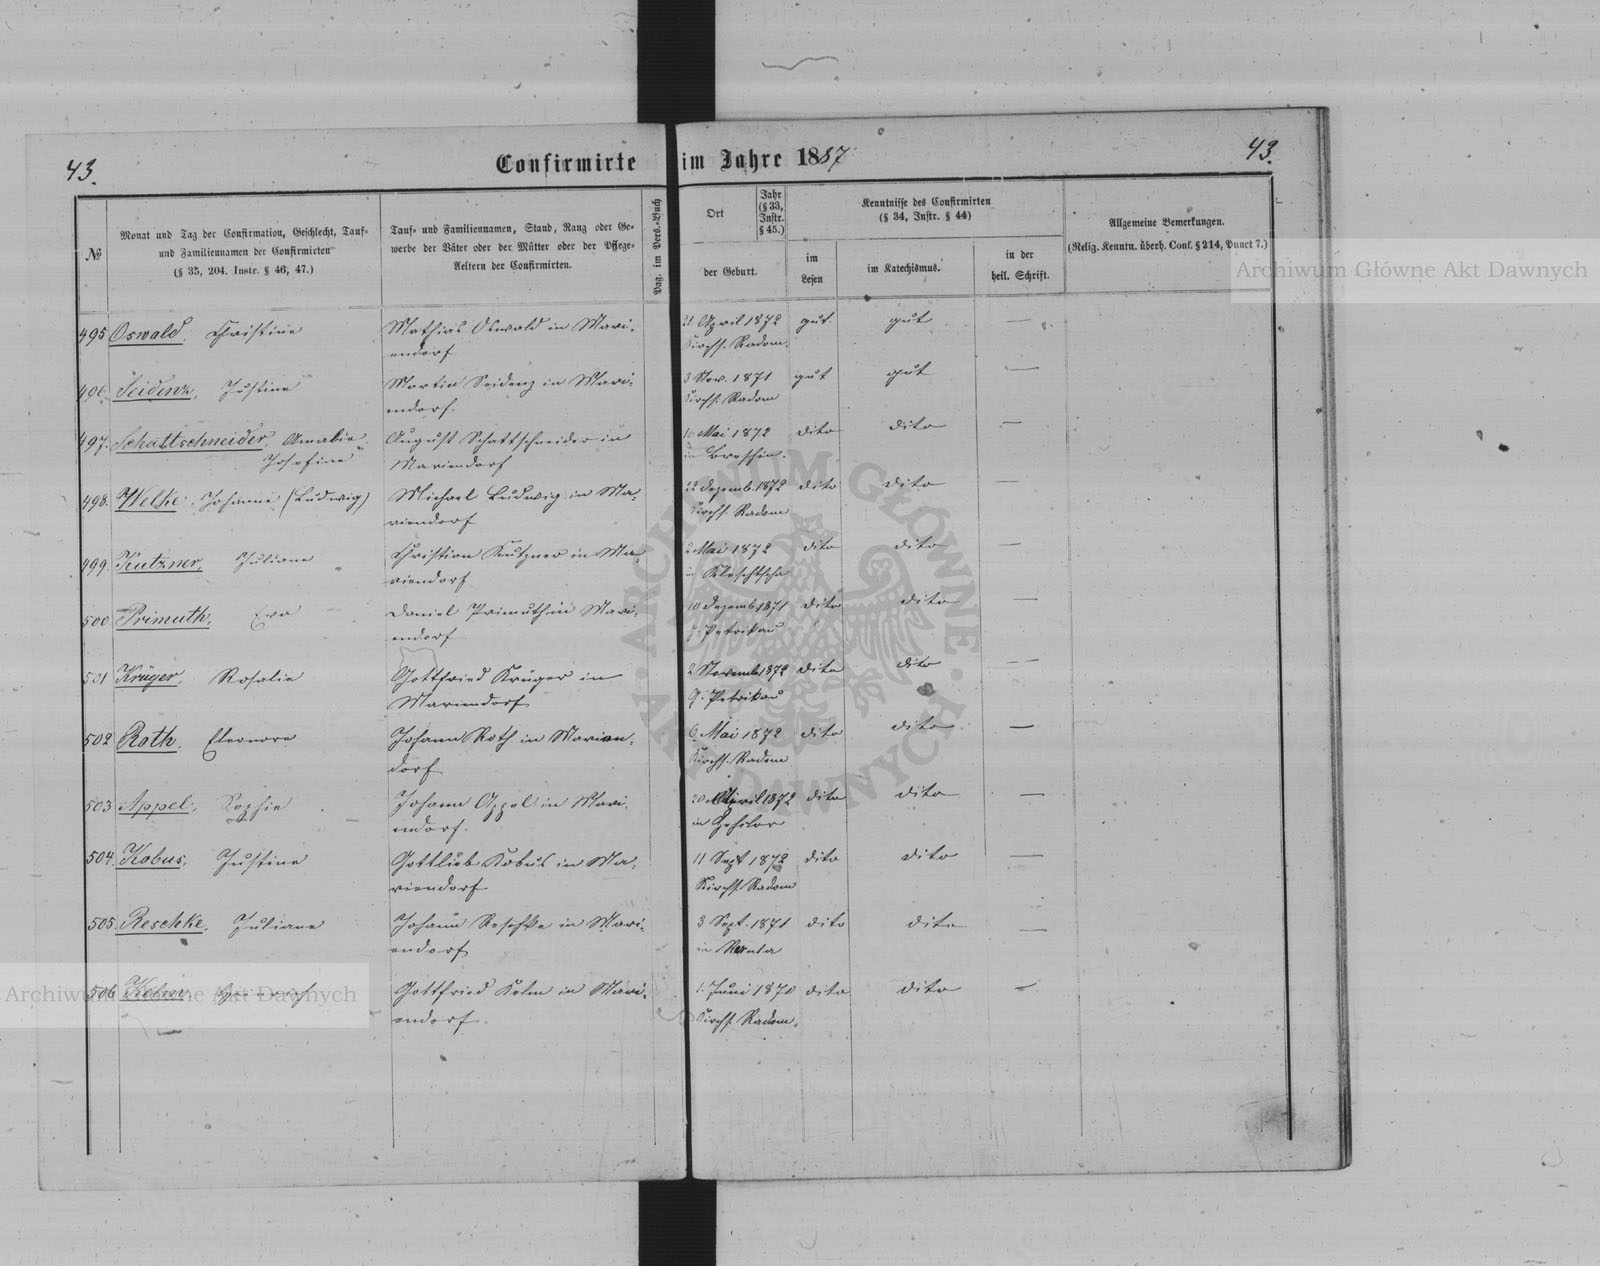 43.
Confirmirte im Jahre 1887
43.
№
Monat und Tag der Confirmation, Geschlecht, Tauf=
und Familiennamen der Confirmirten
(§ 35, 204. Instr. § 46, 47.)
Tauf= und Familiennamen, Stand, Rang oder Ge=
werbe der Väter oder der Mütter oder der Pflege=
Aeltern der Confirmirten.
Pag. im Pers.=Buch
Ort
Jahr
(§ 33,
Instr.
§ 45.)
der Geburt.
Kenntnisse des Confirmirten
(§ 34, Instr. § 44)
im
Lesen
im Katechismus.
in der
heil. Schrift.
Allgemeine Bemerkungen.
(Relig. Kenntn. überh. Conf. § 214, Punct 7.)
Archiwum Główne Akt Dawnych
495 Oswald, Christine
Mathias Oswald in Mari=
endorf
21 April 1872 gut. gut —
Kirchs. Radom.
496. Seidenz, Justine
Martin Seidenz in Mari=
endorf.
3 Nov. 1871 gut gut —
Kirchs. Radom
497. Schattschneider, Amalie
Josefine
August Schattschneider in
Mariendorf
Mai 1872 dito dito —
in
498. Welke, Johanne (Ludwig)
Michael Ludwig in Ma=
riendorf
22 Dezemb. 1872 dito dito —
Kirchs. Radom
499. Kutzner, Juliane
Christian Kutzner in Ma=
riendorf
2 Mai 1872 dito dito —
in
500 Primuth, Eva
Daniel Primuth in Mari=
endorf
10 Dezemb. 1871 dito dito —
Petrikau
501 Krüger, Rosalie
Gottfried Krüger in
Mariendorf
2 Novemb. 1872 dito dito —
G. Petrikau
502 Roth, Eleonore
Johann Roth in Marien=
dorf
6. Mai 1872 dito dito —
Kirchs. Radom
503 Appel, Sophie
Johann Appel in Mari=
endorf.
20 April 1872 dito dito —
in
504. Kobus, Justine
Gottlieb Kobus in Ma=
riendorf
11 Sept 1872 dito dito —
Kirchs. Radom
505. Reschke, Juliane
Johann Reschke in Mari=
endorf
3 Sept. 1871 dito dito —
in
506 Kelm Heinrich
Gottfried Kelm in Mari=
endorf.
1. Juni 1870 dito dito —
Kirchs. Radom.
Archiwum Główne Akt Dawnych
ARCHIWUM GŁÓWNE AKT DAWNYCH